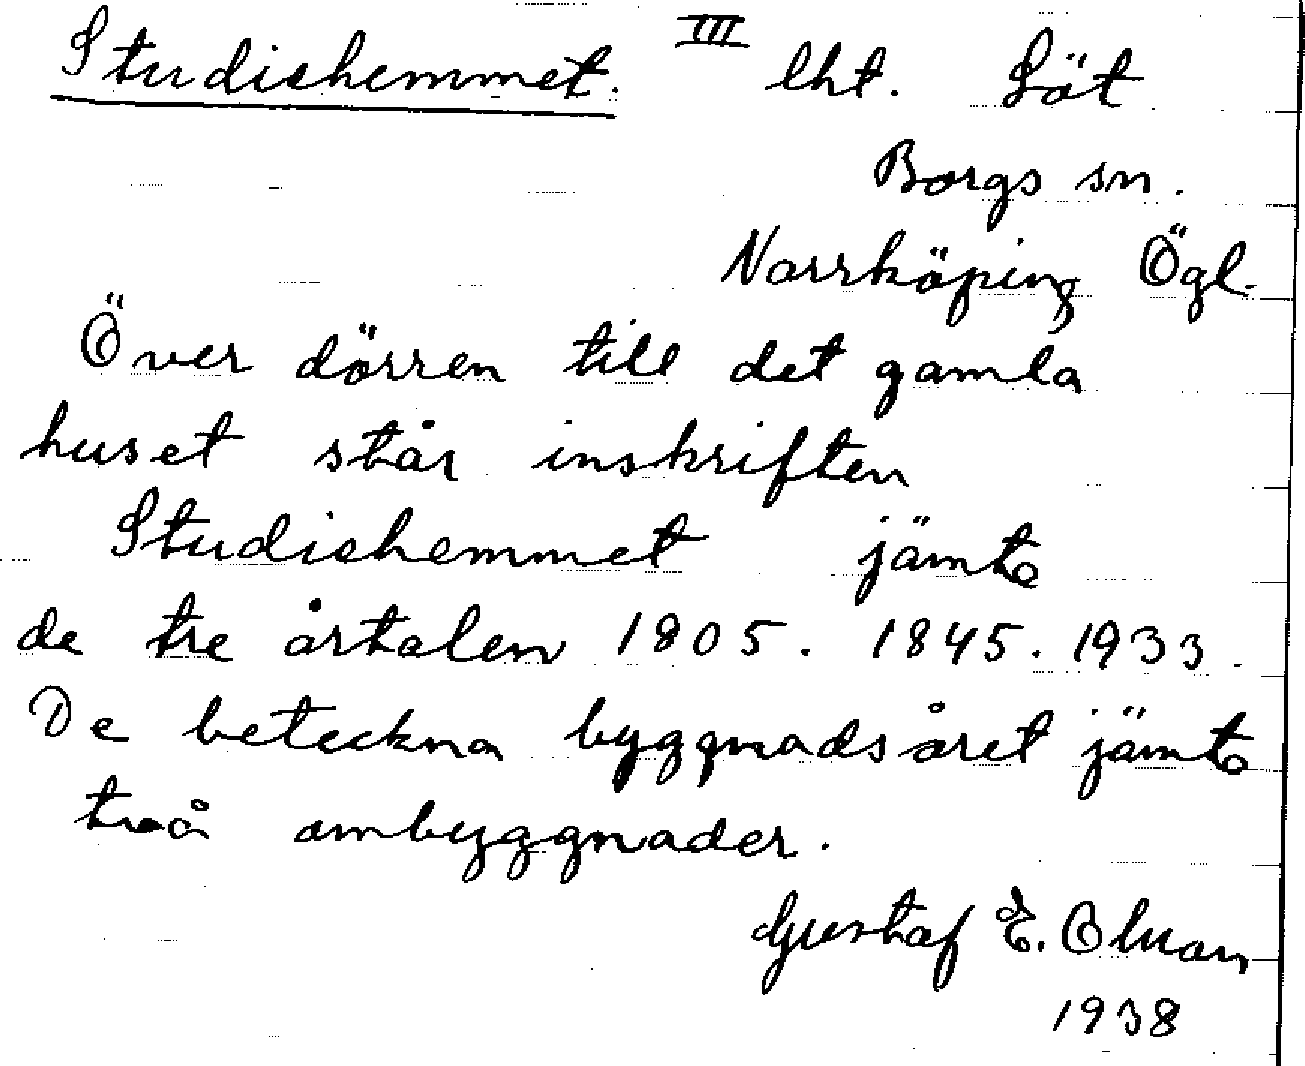 Studiehemmet. III lht. Löt
Borgs sn.
Norrköping Ögl.
Över dörren till det gamla
huset står inskriften
Studiehemmet jämte
de tre årtalen 1805. 1845. 1933.
De beteckna byggnadsåret jämte
två ombyggnader.
Gustaf E. Olsson
1938